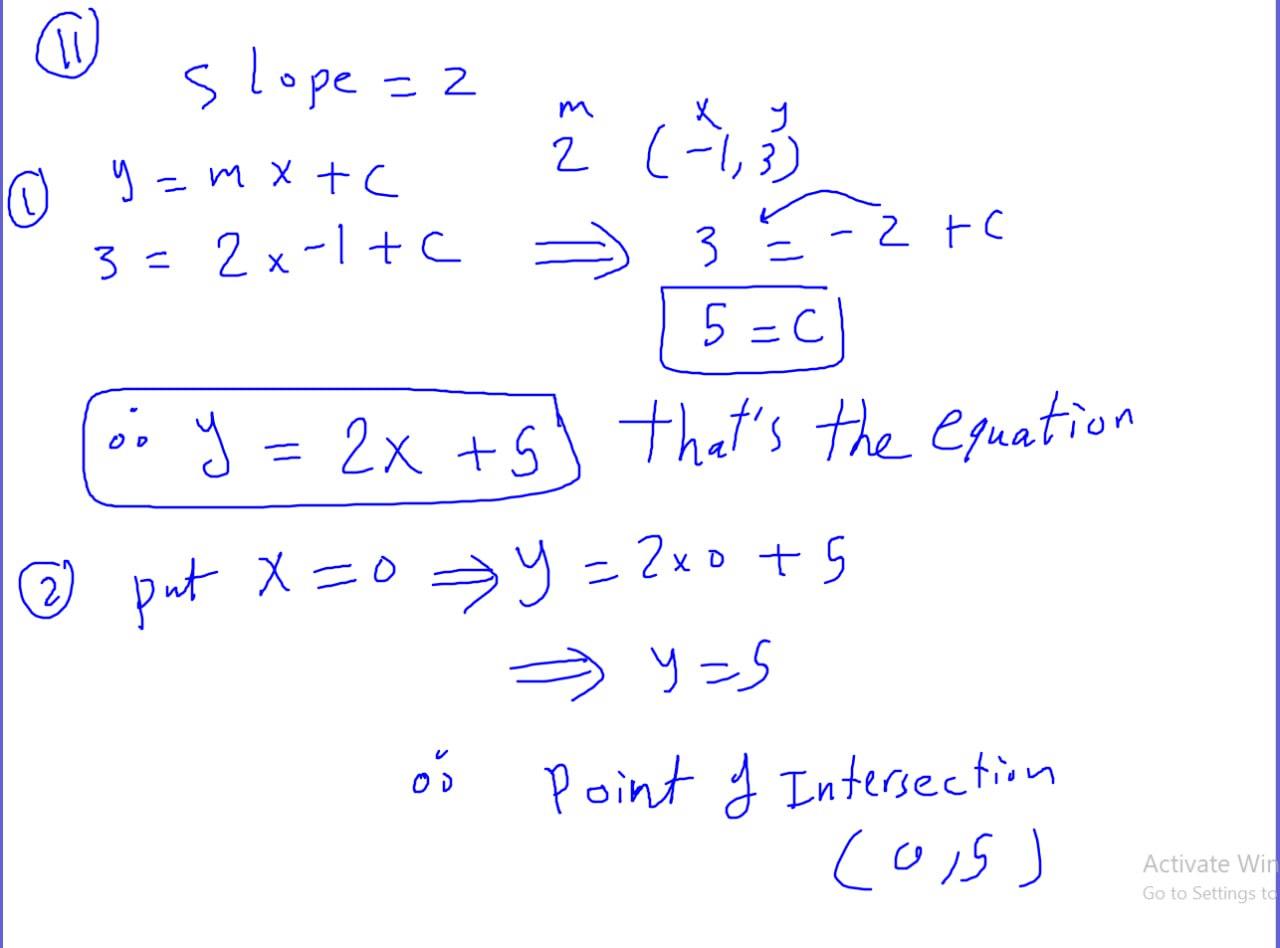 11
slope = 2
m x y
2 (-1, 3)
① y = m x + c
3 = 2 x -1 + c ⟹ 3 = -2 + c
5 = c
∴ y = 2x + 5 that's the equation
② put x = 0 ⟹ y = 2 x 0 + 5
⟹ y = 5
∴ Point of Intersection
(0, 5)
Activate Win
Go to Settings to